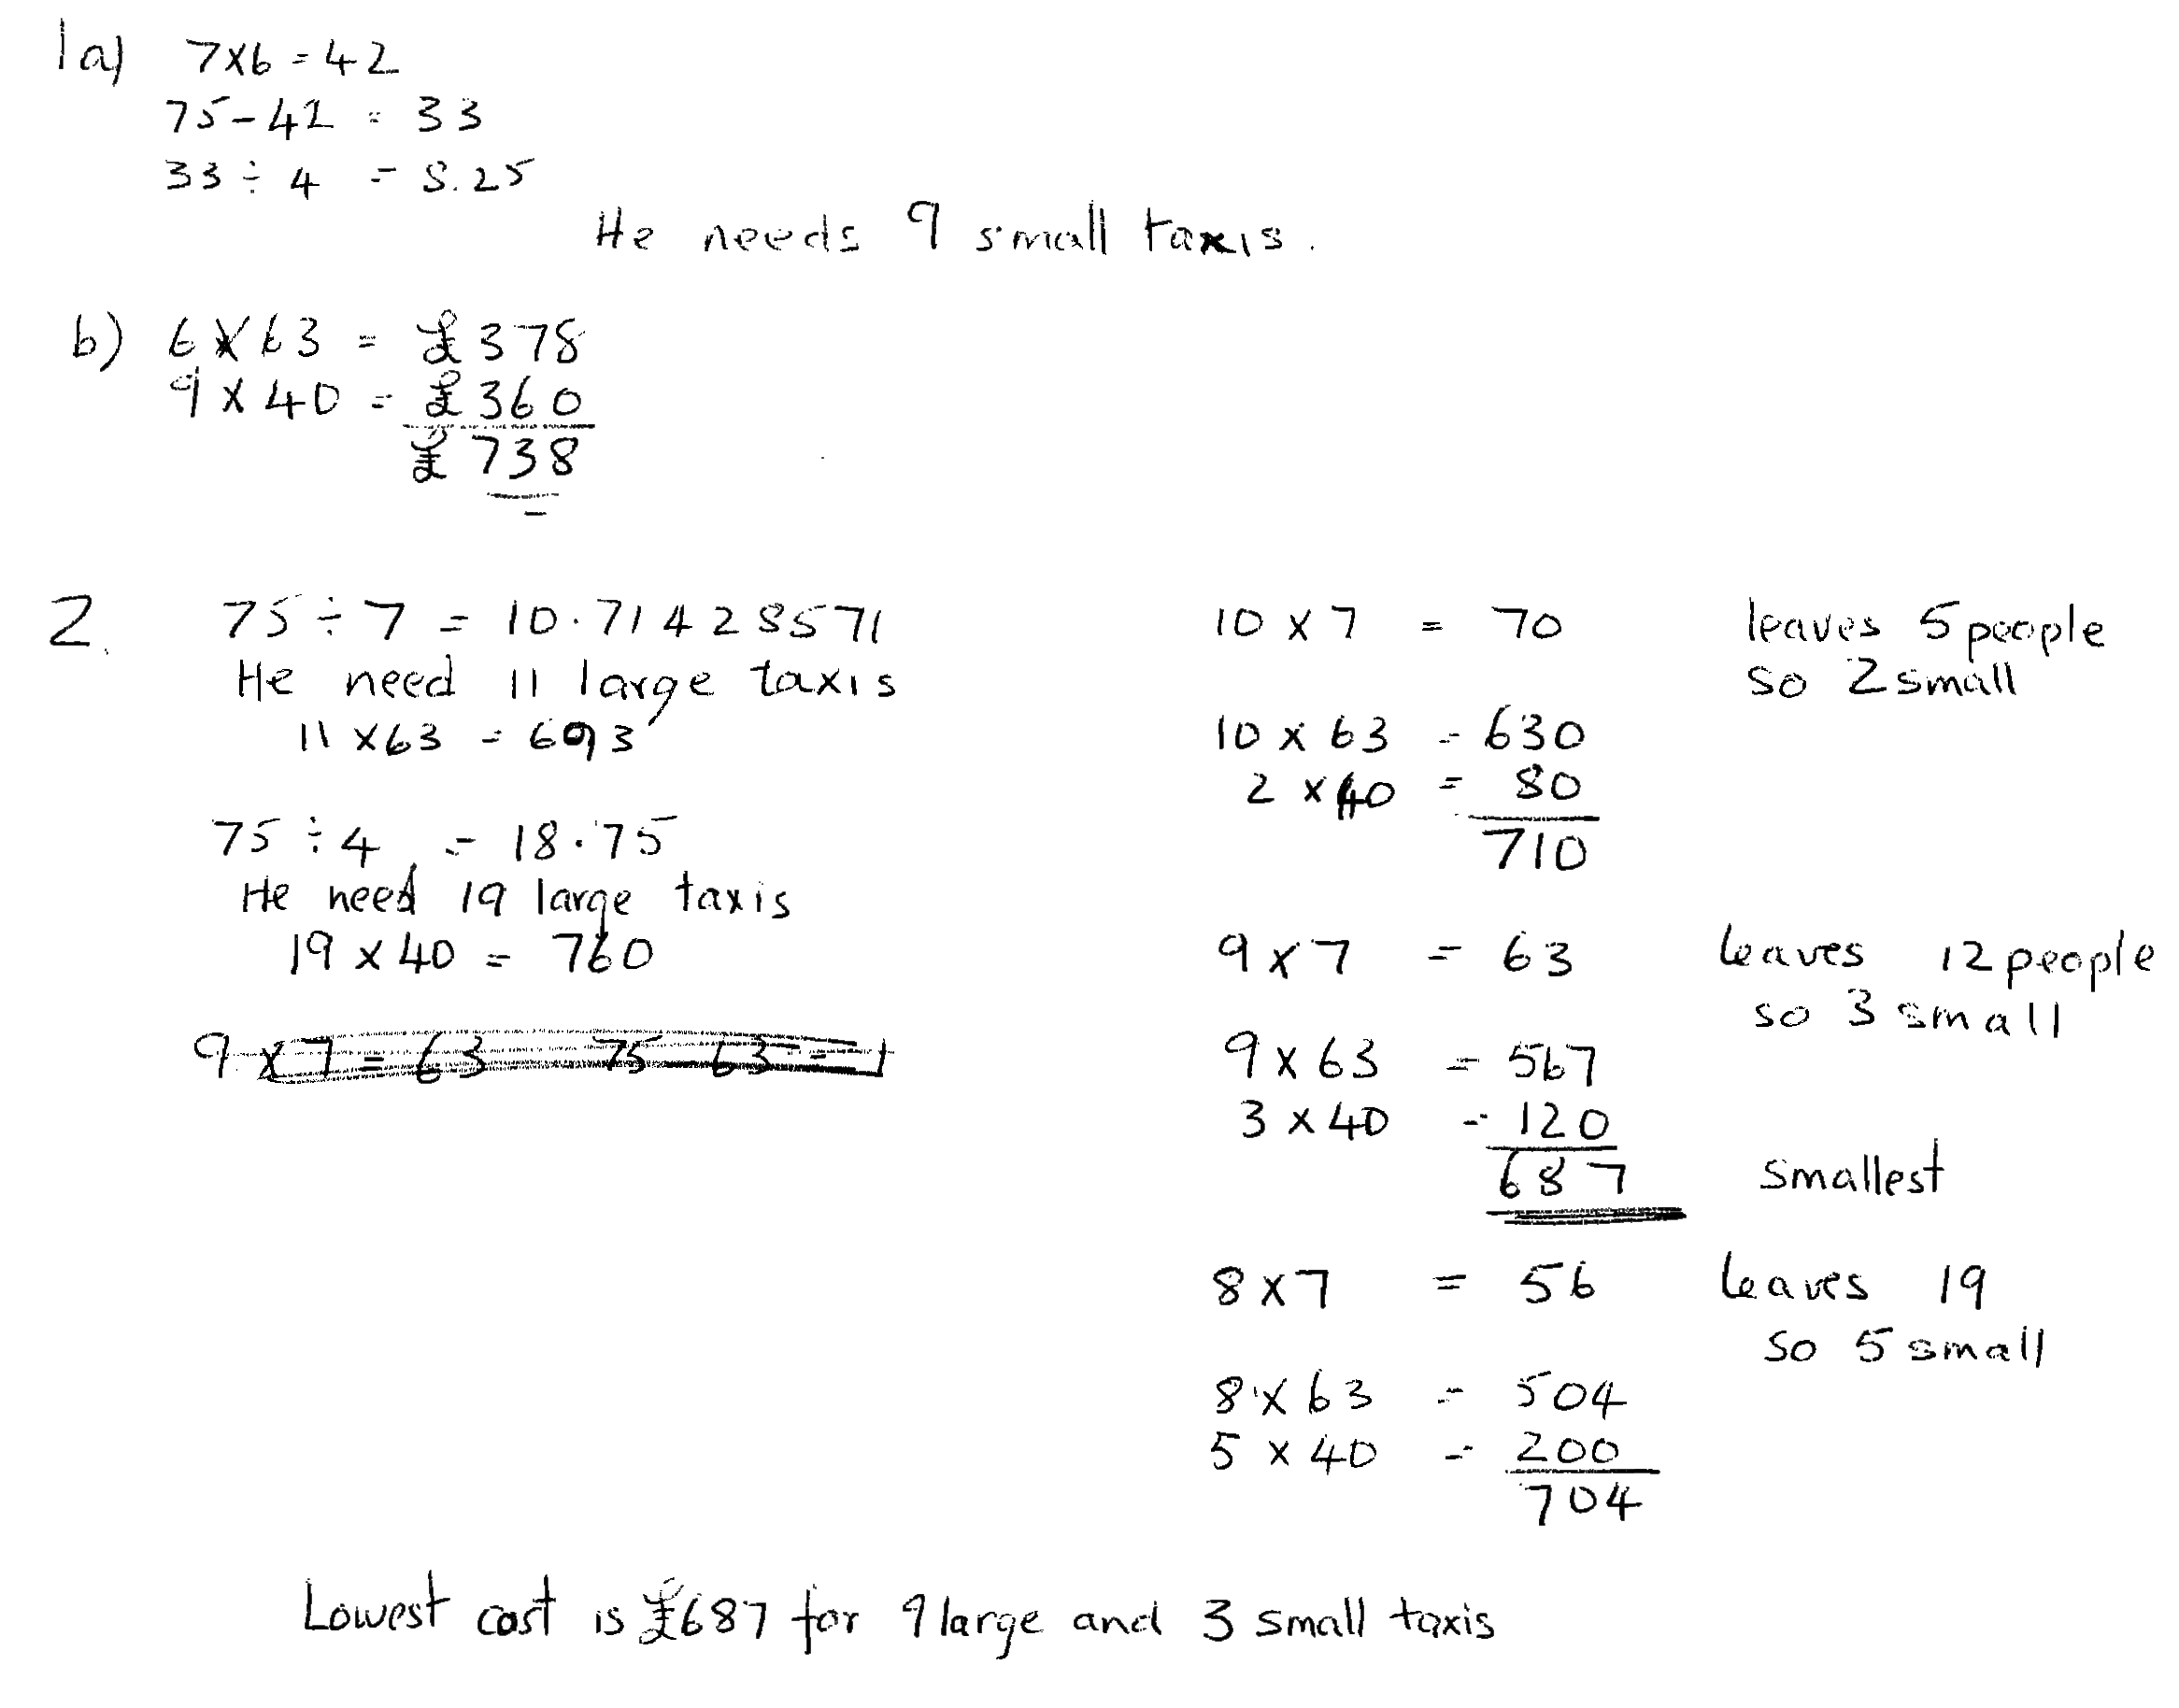 1a) 7×6 = 42
75-42 = 33
33 ÷ 4 = 8.25
He needs 9 small taxis.
b) 6×63 = £378
9 × 40 = £360
£738
2. 75 ÷ 7 = 10.71428571
He need 11 large taxis
11 ×63 = 693
75 ÷ 4 = 18.75
He need 19 large taxis
19 × 40 = 760
9 × 7 = 63 75 63 = 1
10 × 7 = 70 leaves 5 people
so 2 small
10 × 63 = 630
2 × 40 = 80
710
9 × 7 = 63 leaves 12 people
so 3 small
9 × 63 = 567
3 × 40 = 120
687 smallest
8 ×7 = 56 leaves 19
so 5 small
8 × 63 = 504
5 × 40 = 200
704
Lowest cost is £687 for 9 large and 3 small taxis